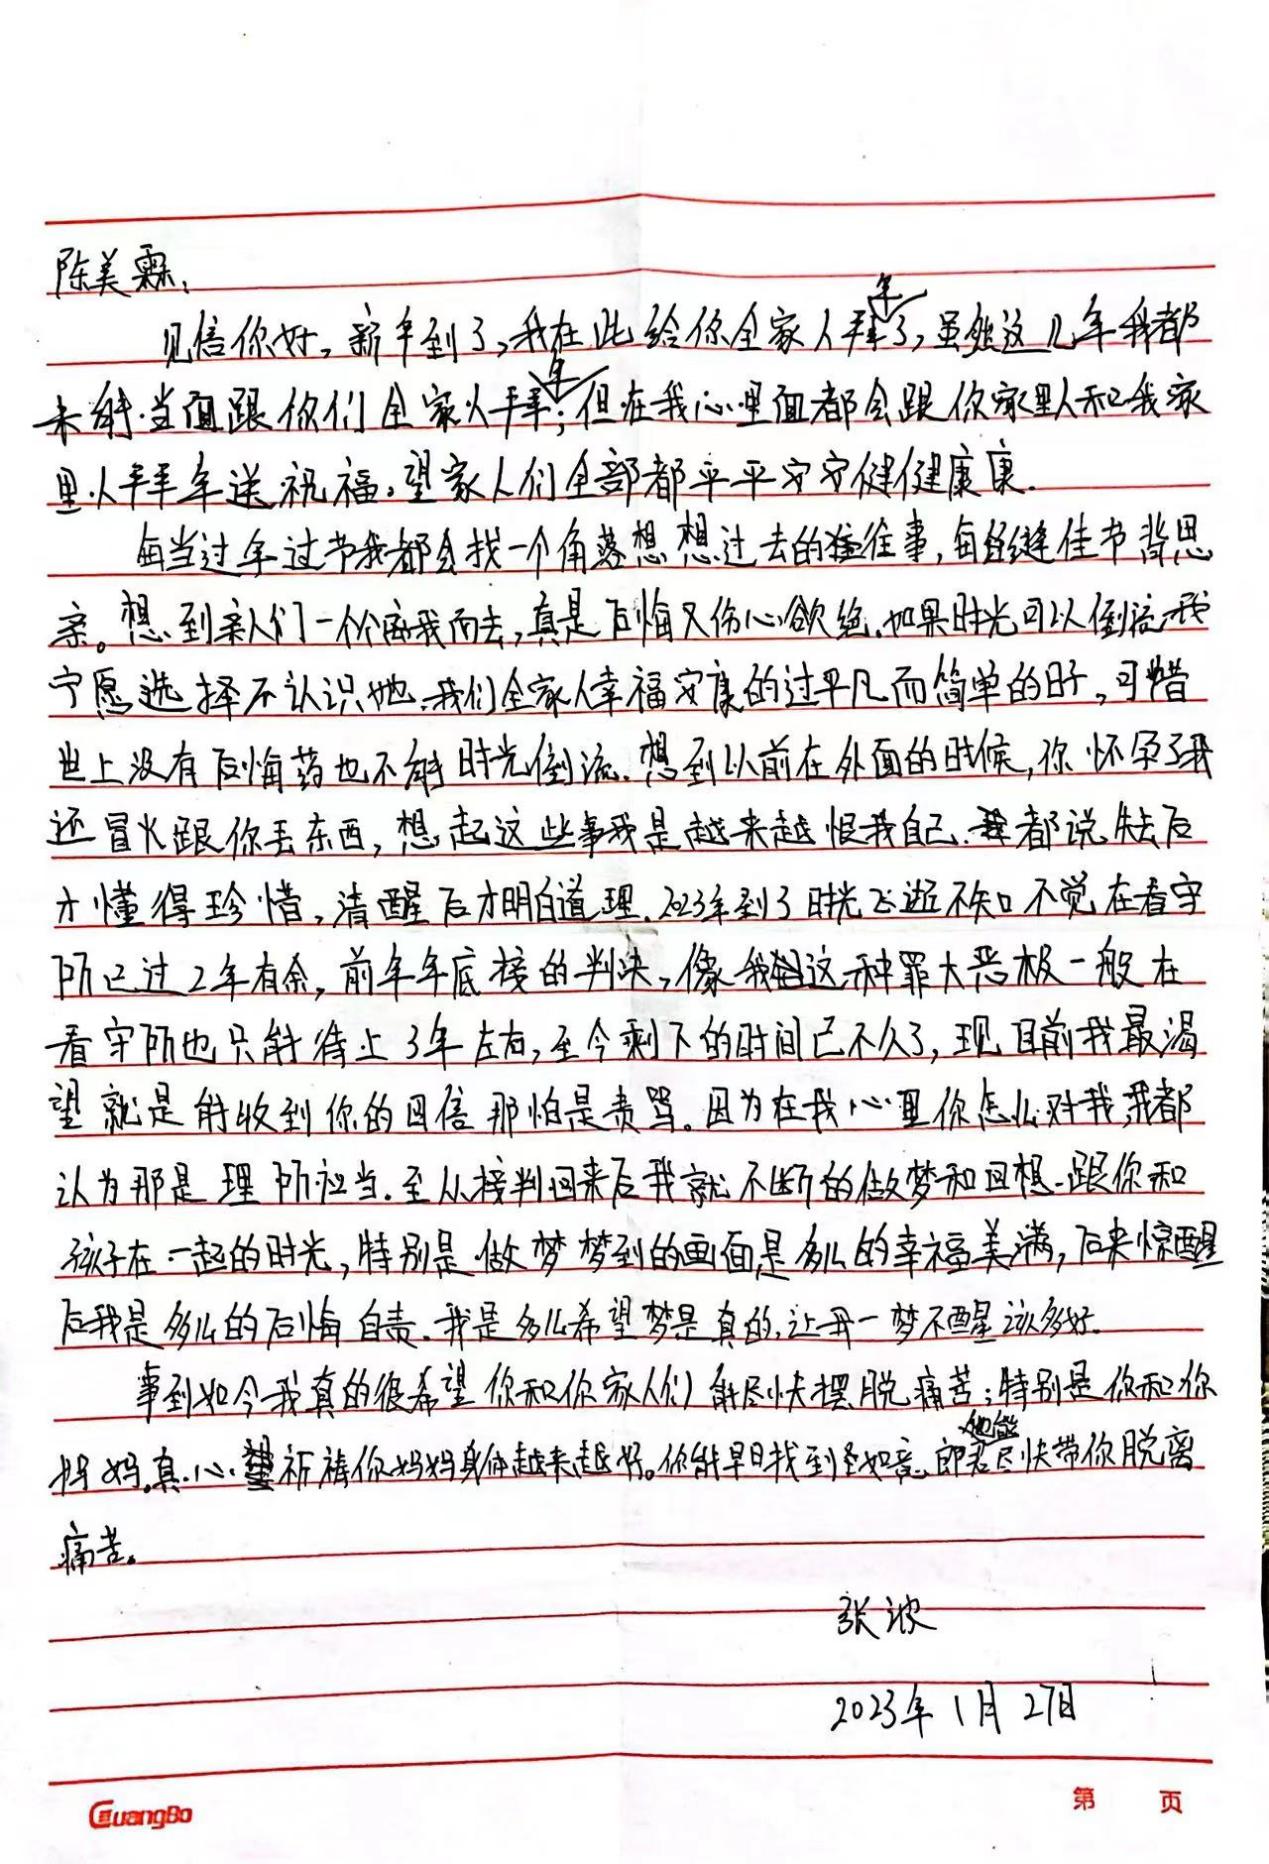 陈美霖:
见信你好,新年到了,我在此给你全家人拜年了,虽然这几年我都
未能当面跟你们全家人拜年;但在我心里面都会跟你家里人和我家
里人拜年送祝福。望家人们全部都平平安安健健康康.
每当过年过节我都会找一个角落想想过去的往事,每缝佳节背思
亲。想到亲人们一个个离我而去,真是后悔又伤心欲绝.如果时光可以倒流我
宁愿选择不认识她.我们全家人幸福安康的过平凡而简单的日子,可惜
世上没有后悔药也不能时光倒流.想到以前在外面的时候,你怀孕了我
还冒火跟你丢东西,想起这些事我是越来越恨我自己.都说失去后
才懂得珍惜,清醒后才明白道理.2023年到了时光飞逝不知不觉在看守
所已过2年有余,前年年底接的判决,像我这种罪大恶极一般在
看守所也只能待上3年左右,至今剩下的时间已不久了,现目前我最渴
望就是能收到你的回信那怕是责骂。因为在我心里你怎么对我,我都
认为那是理所应当.至从接判回来后我就不断的做梦和回想跟你和
孩子在一起的时光,特别是做梦梦到的画面是多么的幸福美满,后来惊醒
后我是多么的后悔自责.我是多么希望梦是真的,让我一梦不醒该多好.
事到如今我真的很希望你和你家人们能尽快摆脱痛苦;特别是你和你
妈妈.真心祈祷你妈妈身体越来越好。你能早日找到如意郎君他能尽快带你脱离
痛苦。
张波
2023年1月27日
GuangBo 第 页